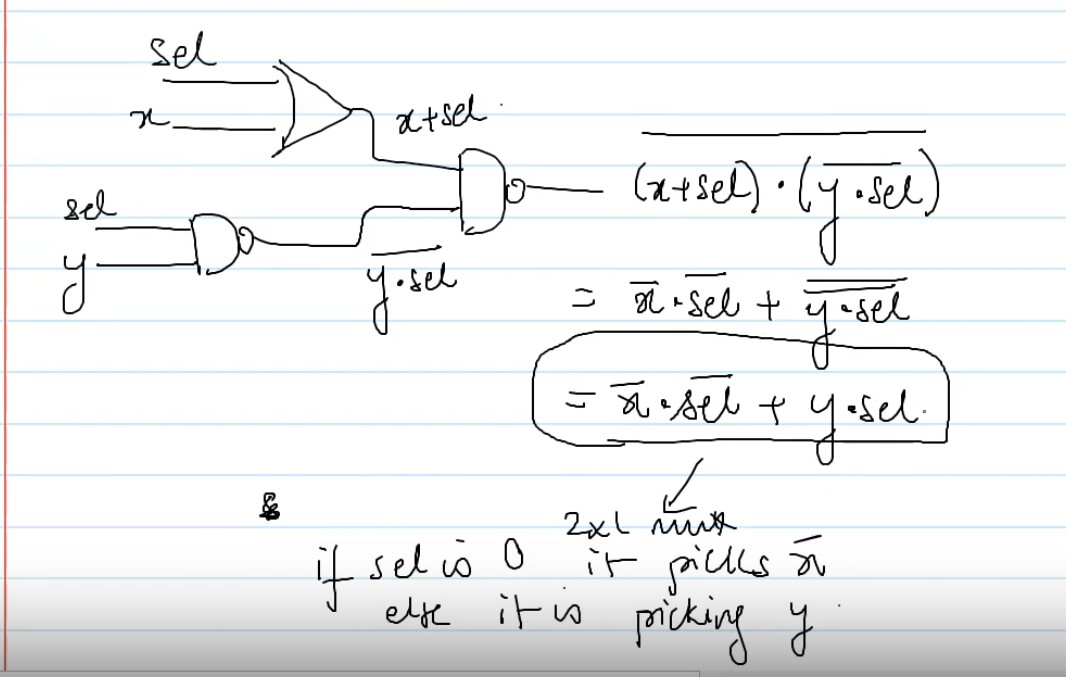 sel
x
x+sel
sel
y
y̅·̅s̅e̅l̅
\overline{(x+sel)·(\overline{y·sel})}
= x̅·\overline{sel} + \overline{\overline{y·sel}}
= x̅·\overline{sel} + y·sel.
2x1 mux
if sel is 0 it picks x̅
else it is picking y